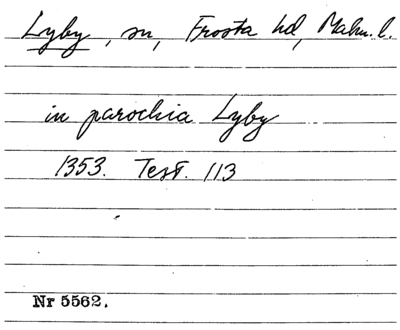 Lyby, sn, Frosta hd, Malm. l.
in parochia Lyby
1353. Test. 113
Nr 5562.